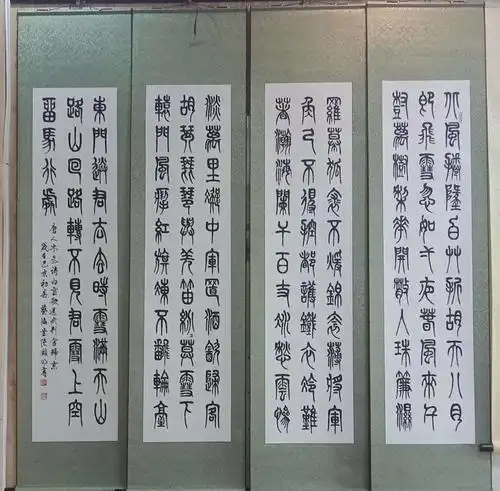 北風捲地白草折胡天八月
即飛雪忽如一夜春風來千
樹萬樹梨花開散入珠簾濕
羅幕狐裘不煖錦衾薄將軍
角弓不得控都護鐵衣冷難
著瀚海闌干百丈冰愁雲慘
淡萬里凝中軍置酒飲歸客
胡琴琵琶與羌笛紛紛莫雪下
轅門風掣紅旗凍不翻輪臺
東門送君去去時雪滿天山
路山回路轉不見君雪上空
留馬行處
唐人岑參詩白雪歌送武判官歸京
歲在己亥初春